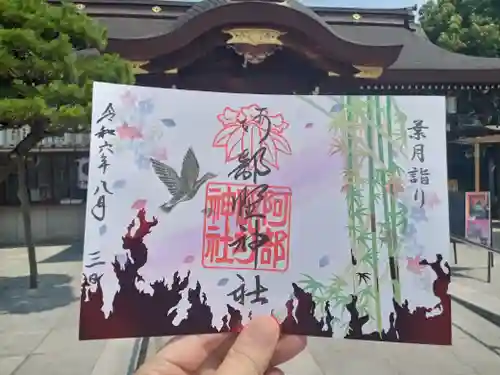 葉月詣り
阿部野神社
阿部野神社
令和六年八月三日